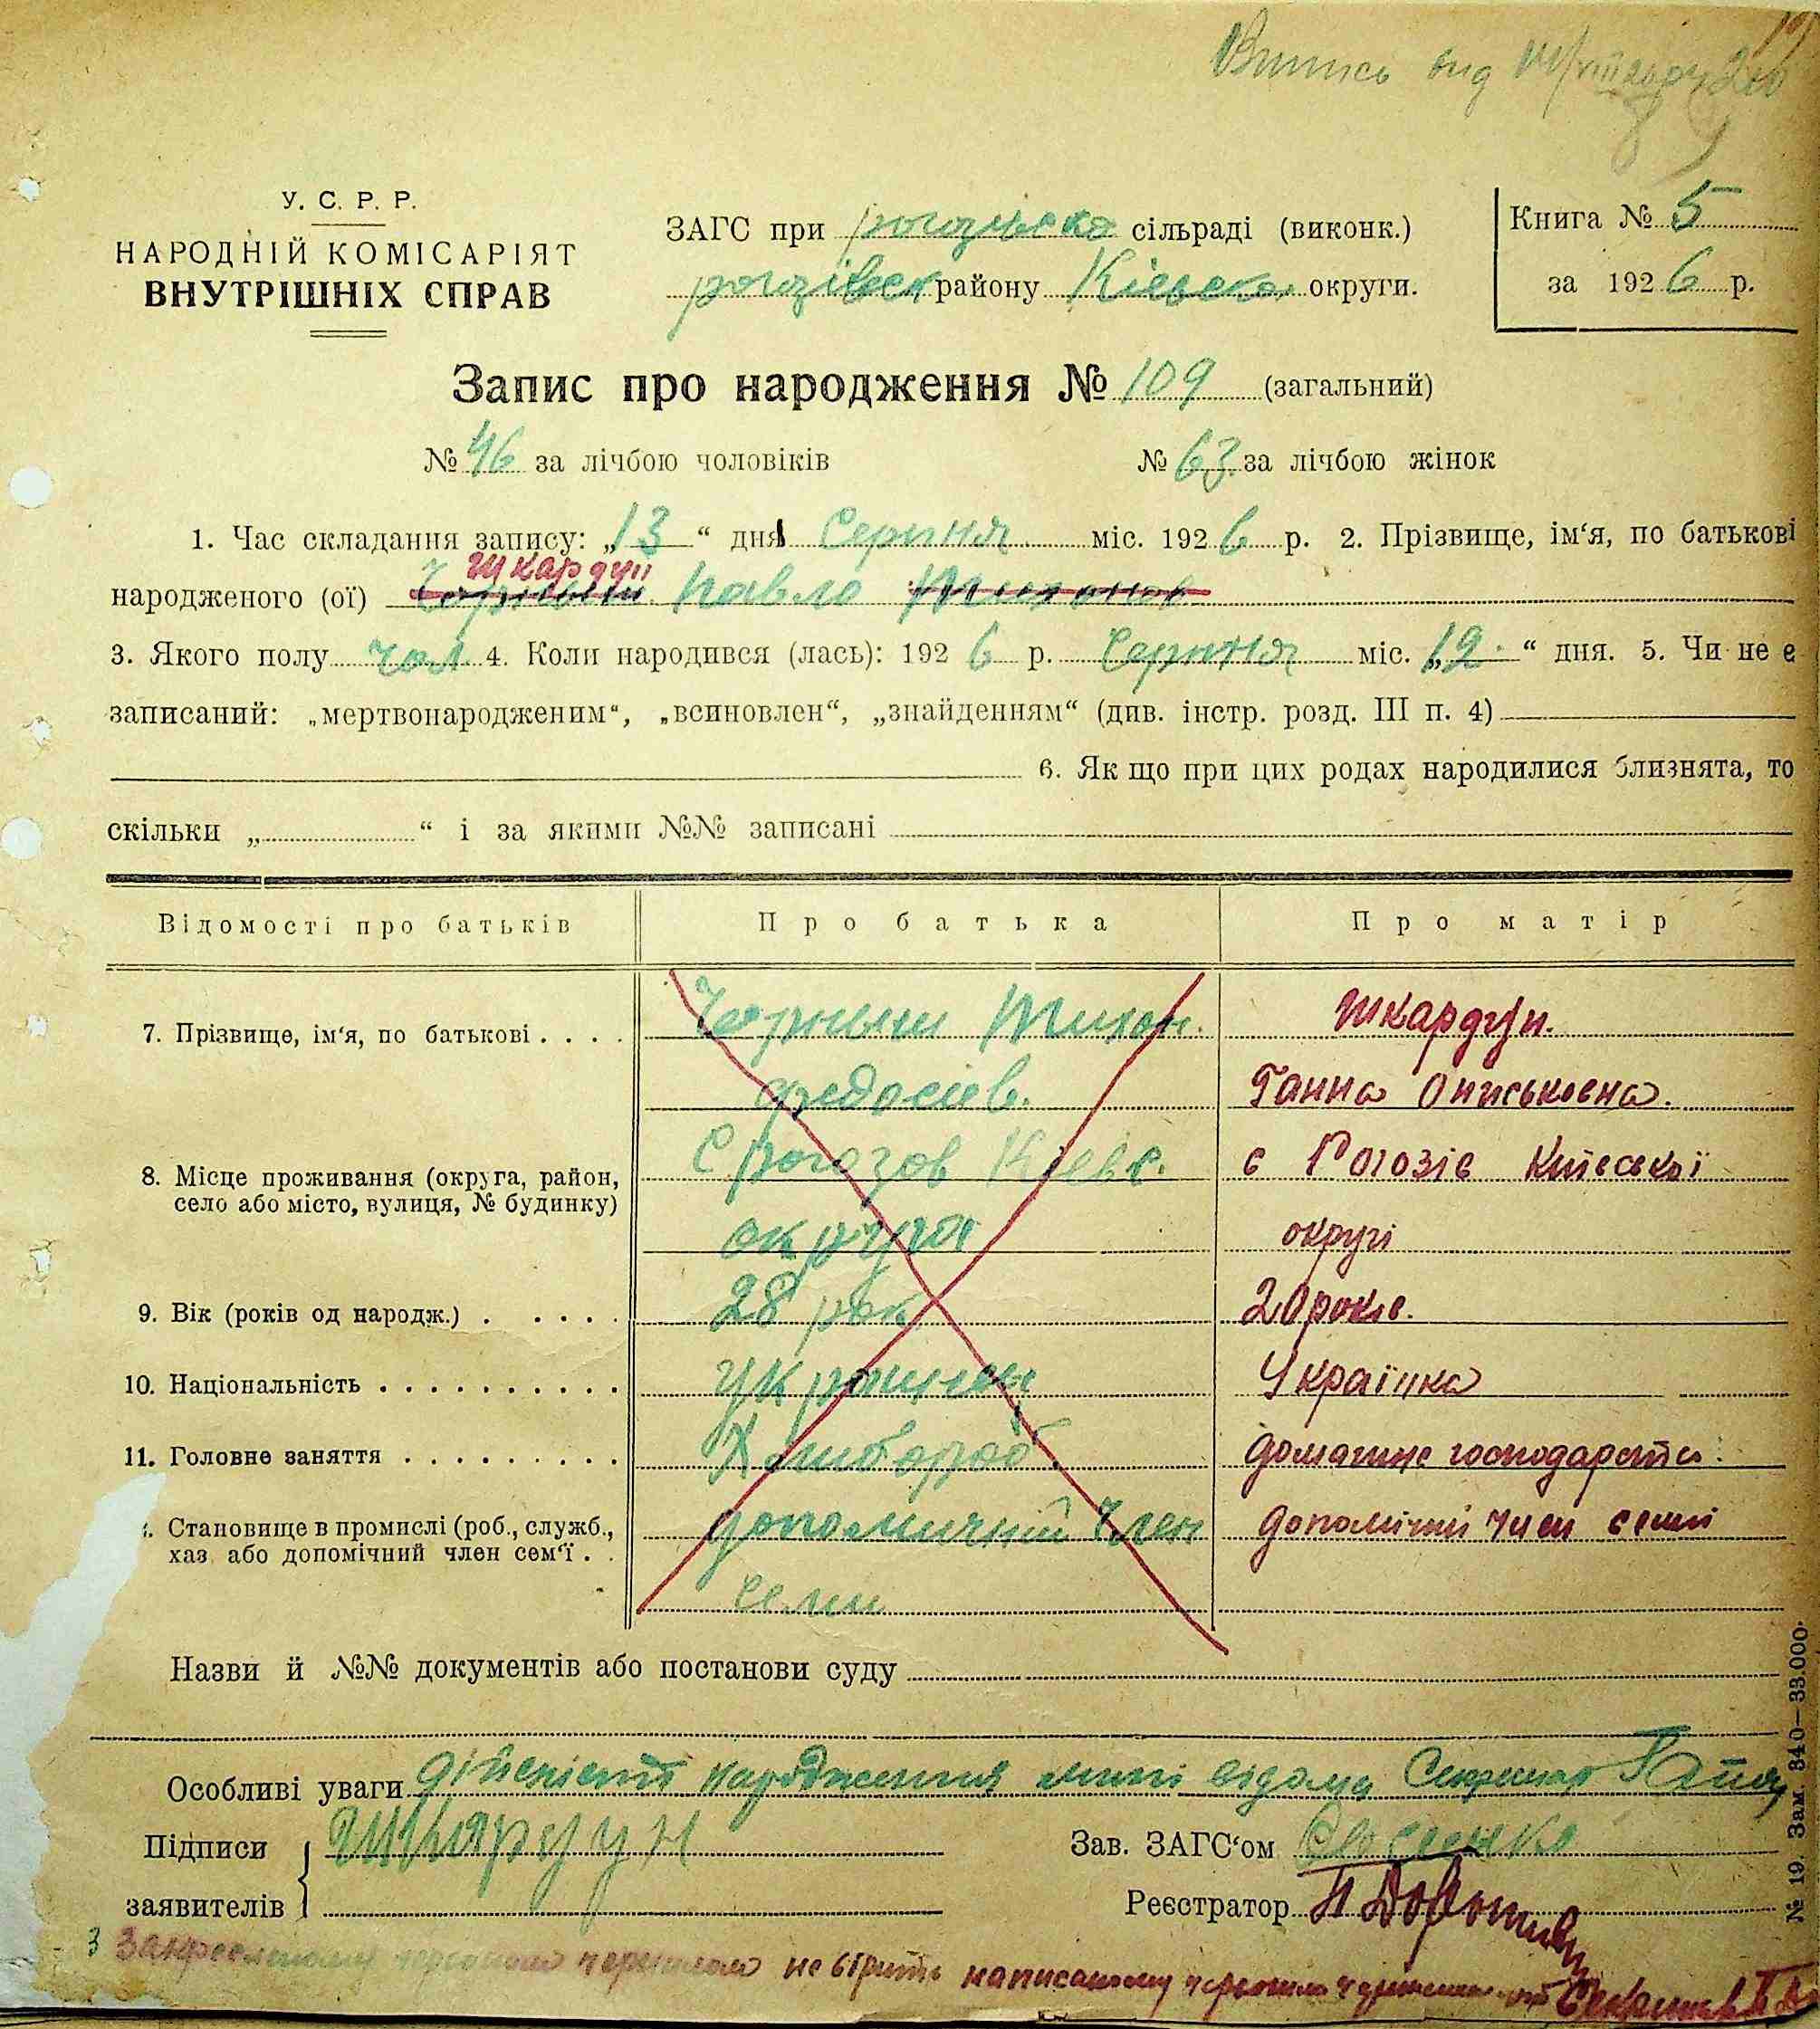 Випись
У. С. Р. Р.
НАРОДНІЙ КОМІСАРІЯТ
ВНУТРІШНІХ СПРАВ
ЗАГС при рогозивско сільраді (виконк.)
рогозівск району Кіевско округи.
Книга № 5
за 1926 р.
Запис про народження № 109 (загальний)
№ 46 за лічбою чоловіків № 63 за лічбою жінок
1. Час складання запису: „13“ дня Серпня міс. 1926 р. 2. Прізвище, ім‘я, по батькові
Шкардун
народженого (ої) Павло
3. Якого полу чол 4. Коли народився (лась): 1926 р. Серпня міс. „12“ дня. 5. Чи не є
записаний: „мертвонародженим“, „всиновлен“, „знайденням“ (див. інстр. розд. III п. 4)
6. Як що при цих родах народилися близнята, то
скільки „ “ і за якими №№ записані
Відомості про батьків Про батька Про матір
7. Прізвище, ім‘я, по батькові . . . . Чорныш Тихон. Шкардун.
федосіев. Ганна Ониськовна.
8. Місце проживання (округа, район, село або місто, вулиця, № будинку) С рогозов Кіевс. с Рогозів Київської
округи округі
9. Вік (років од народж.) . . . . . 28 рок 20 років.
10. Національність . . . . . . . . . . украинец Українка
11. Головне заняття . . . . . . . . . Хлибороб домашнє господарство
Становище в промислі (роб., служб., хаз. або допомічний член сем‘ї . . допомичний член допомічний член семі
семи
Назви й №№ документів або постанови суду
Особливі уваги дійсність народження мині відома Секретар
Підписи заявителів Шкардун
Зав. ЗАГС‘ом
Реєстратор
№ 19. Зам. 840—33.000.
не вірить написаному